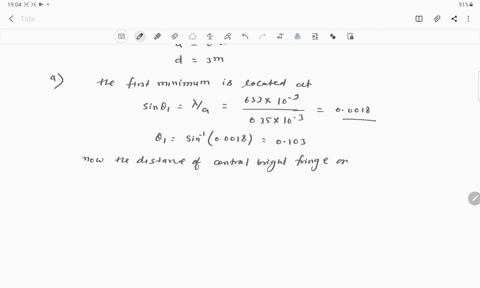 19:04
51%
Title
d = 3m
a) the first minimum is located at
sinθ₁ = λ/a = 633 × 10⁻⁹ / 0.35 × 10⁻³ = 0.0018
θ₁ = sin⁻¹(0.0018) = 0.103
now the distance of central bright fringe on